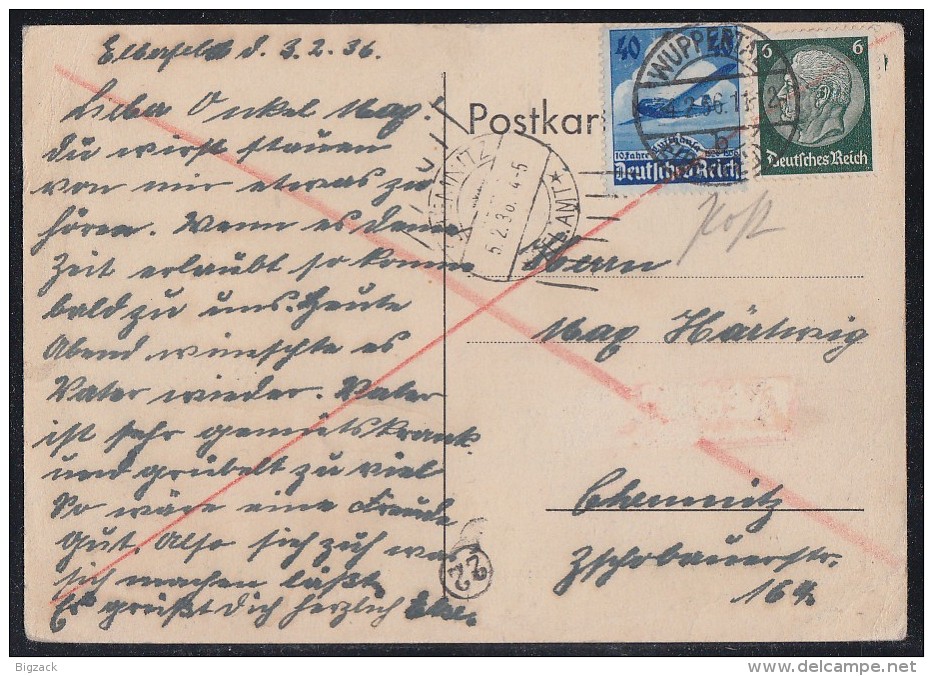 Elberfeld d. 3.2.36.
Liber Onkel Max.
du wirst stauen
von mir etwas zu
hören. Wenn es deine
Zeit erlaubt so komme
bald zu uns. Heute
Abend wünschte es
Vater wieder. Vater
ist sehr gemütskrank
und grübelt zu viel
So wäre eine Freude
gut. Also sieh zuh was
sich machen läßt.
Es grüßt dich herzlich Else.
Postkar
40 40
10 Jahre Lufthansa
Deutsches Reich
6 6
Deutsches Reich
WUPPERTA
4.2.36.11
b
CHEMNITZ
5.2.36. 4-5
TEL. AMT
Post
Herrn
Max Härtwig
Chemnitz
Zschopauerstr.
164.
22
Bigzack
delcampe.net